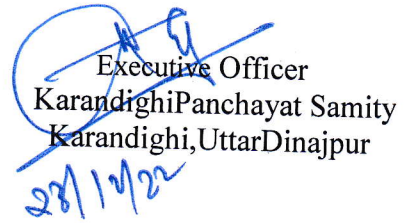 Executive Officer
KarandighiPanchayat Samity
Karandighi,UttarDinajpur